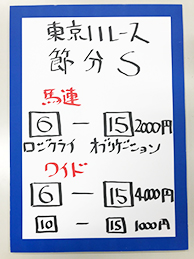 東京11レース
節分S
馬連
6 - 15 2000円
ロングフライ オブリゲーション
ワイド
6 - 15 4000円
10 - 15 1000円